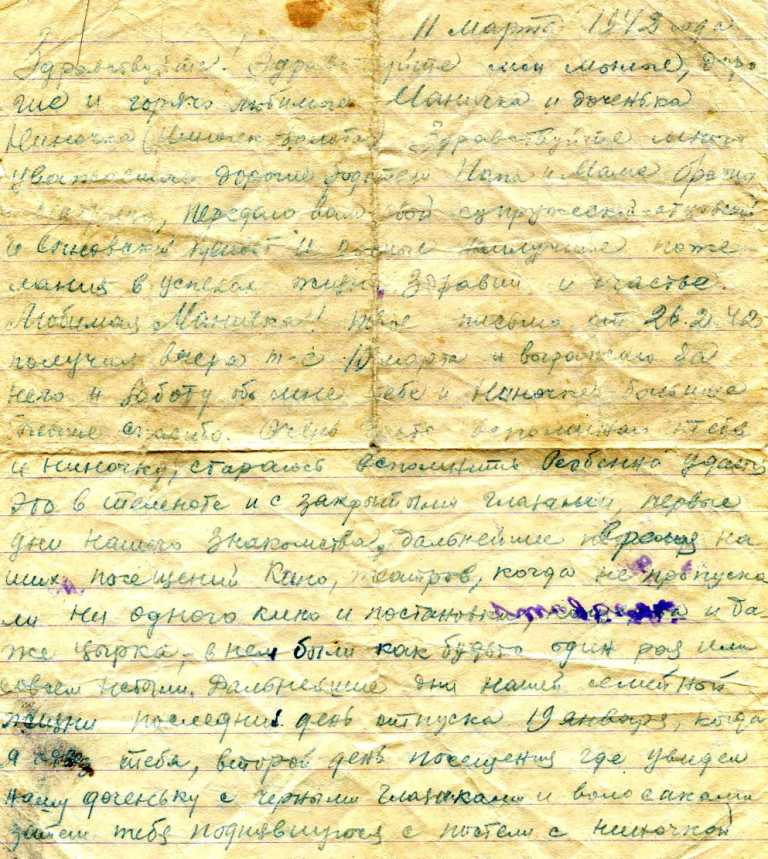 11 марта 1942 года
Здравствуйте! Здравствуйте мои милые, доро
гие и горячо любимые Маничка и доченька
Ниночка Здравствуйте много
уважаемые дорогие родители Папа и Мама братик
передаю вам свой супружеский отцовский
и сыновий привет и наилучшие поже
лания в успехах жизни, здравии и счастье.
Любимая Маничка! Твое письмо от 26.2.42
получил вчера т-е 10 марта и выражаю за
него и заботу обо мне тебе и Ниночке большое
спасибо. Очень часто вспоминаю тебя
и Ниночку, стараюсь вспомнить Особенно удается
это в темноте и с закрытыми глазами, первые
дни нашего знакомства, дальнейшие время на
ших посещений Кино, театров, когда не пропуска
ли ни одного кино и постановки и да-
же цырка, в нем были как будьто один раз или
совсем небыли. Дальнейшие дни нашей семейной
жизни последний день отпуска 19 января, когда
я тебя, второй день посещения где увидел
нашу доченьку с черными глазками и волосиками
затем тебя поднявшуюся с постели с Ниночкой